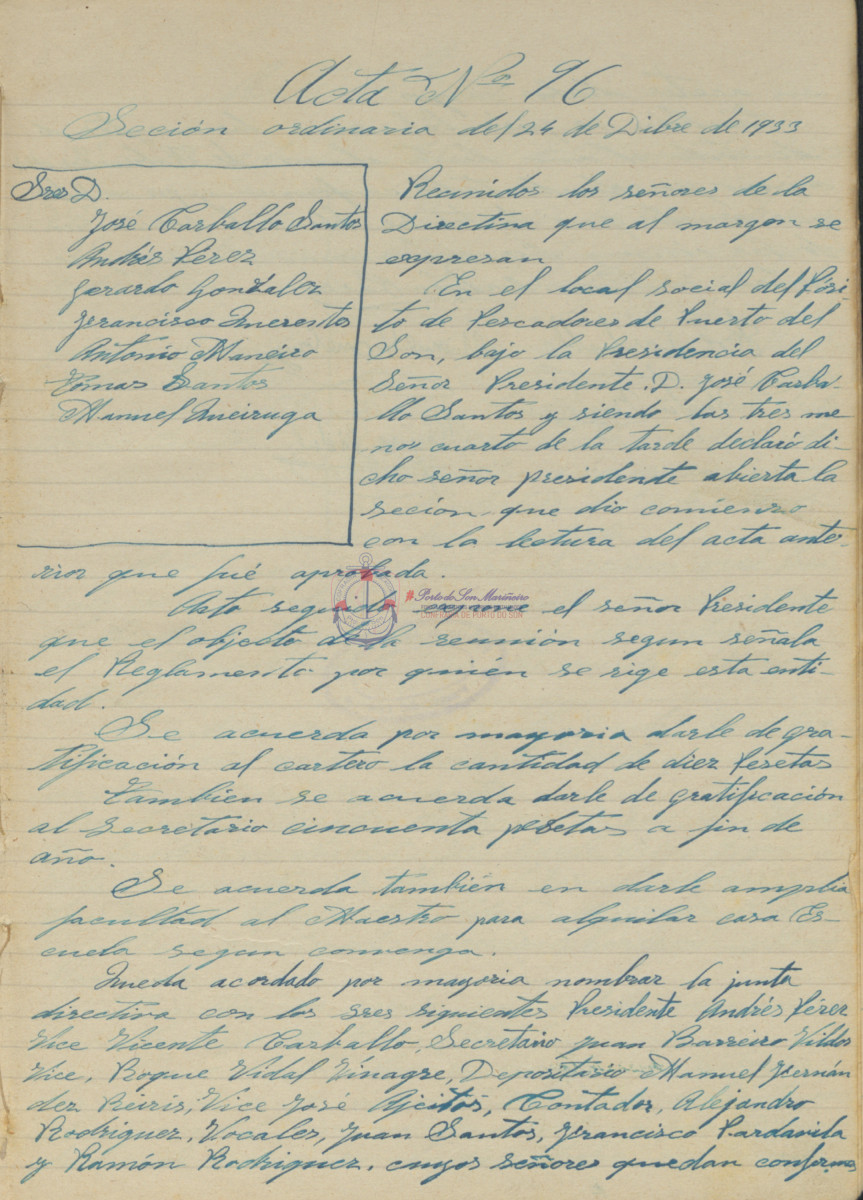 Acta Nº 96
Seción ordinaria del 24 de Dibre de 1933
Sres D.
José Carballo Santos
Andrés Perez
Gerardo Gonzalez
Francisco
Antonio Maneiro
Tomas Santos
Manuel Queiruga
Reunidos los señores de la
Directiva que al margen se
expresan
En el local social del Pósi-
to de Pescadores de Puerto del
Son, bajo la Presidencia del
Señor Presidente. D. José Carba-
llo Santos y siendo las tres me
nos cuarto de la tarde declaró di
cho señor presidente abierta la
seción que dio comienzo
con la lectura del acta ante-
rior que fué aprobada.
Acto seguido expone el señor Presidente
que el objecto de la reunión segun señala
el Reglamento por quién se rige esta enti-
dad.
Se acuerda por mayoria darle de gra-
tificación al cartero la cantidad de diez Pesetas
Tambien se acuerda darle de gratificación
al Secretario cincuenta pesetas a fin de
año.
Se acuerda también en darle amplia
facultad al Maestro para alquilar casa Es-
cuela segun convenga.
Queda acordado por mayoria nombrar la junta
directiva con los sres siguientes Presidente Andrés Pérez
Vice Vicente Carballo, Secretario Juan Barreiro
Vice, Roque Vidal Vinagre, Depositario Manuel Fernán
dez Vice José Contador, Alejandro
Rodriguez, Vocales, Juan Santos, Francisco Pardavila
y Ramón Rodriguez, cuyos señores quedan
#Porto do Son Mariñeiro
CONFRARÍA DE PORTO DO SON